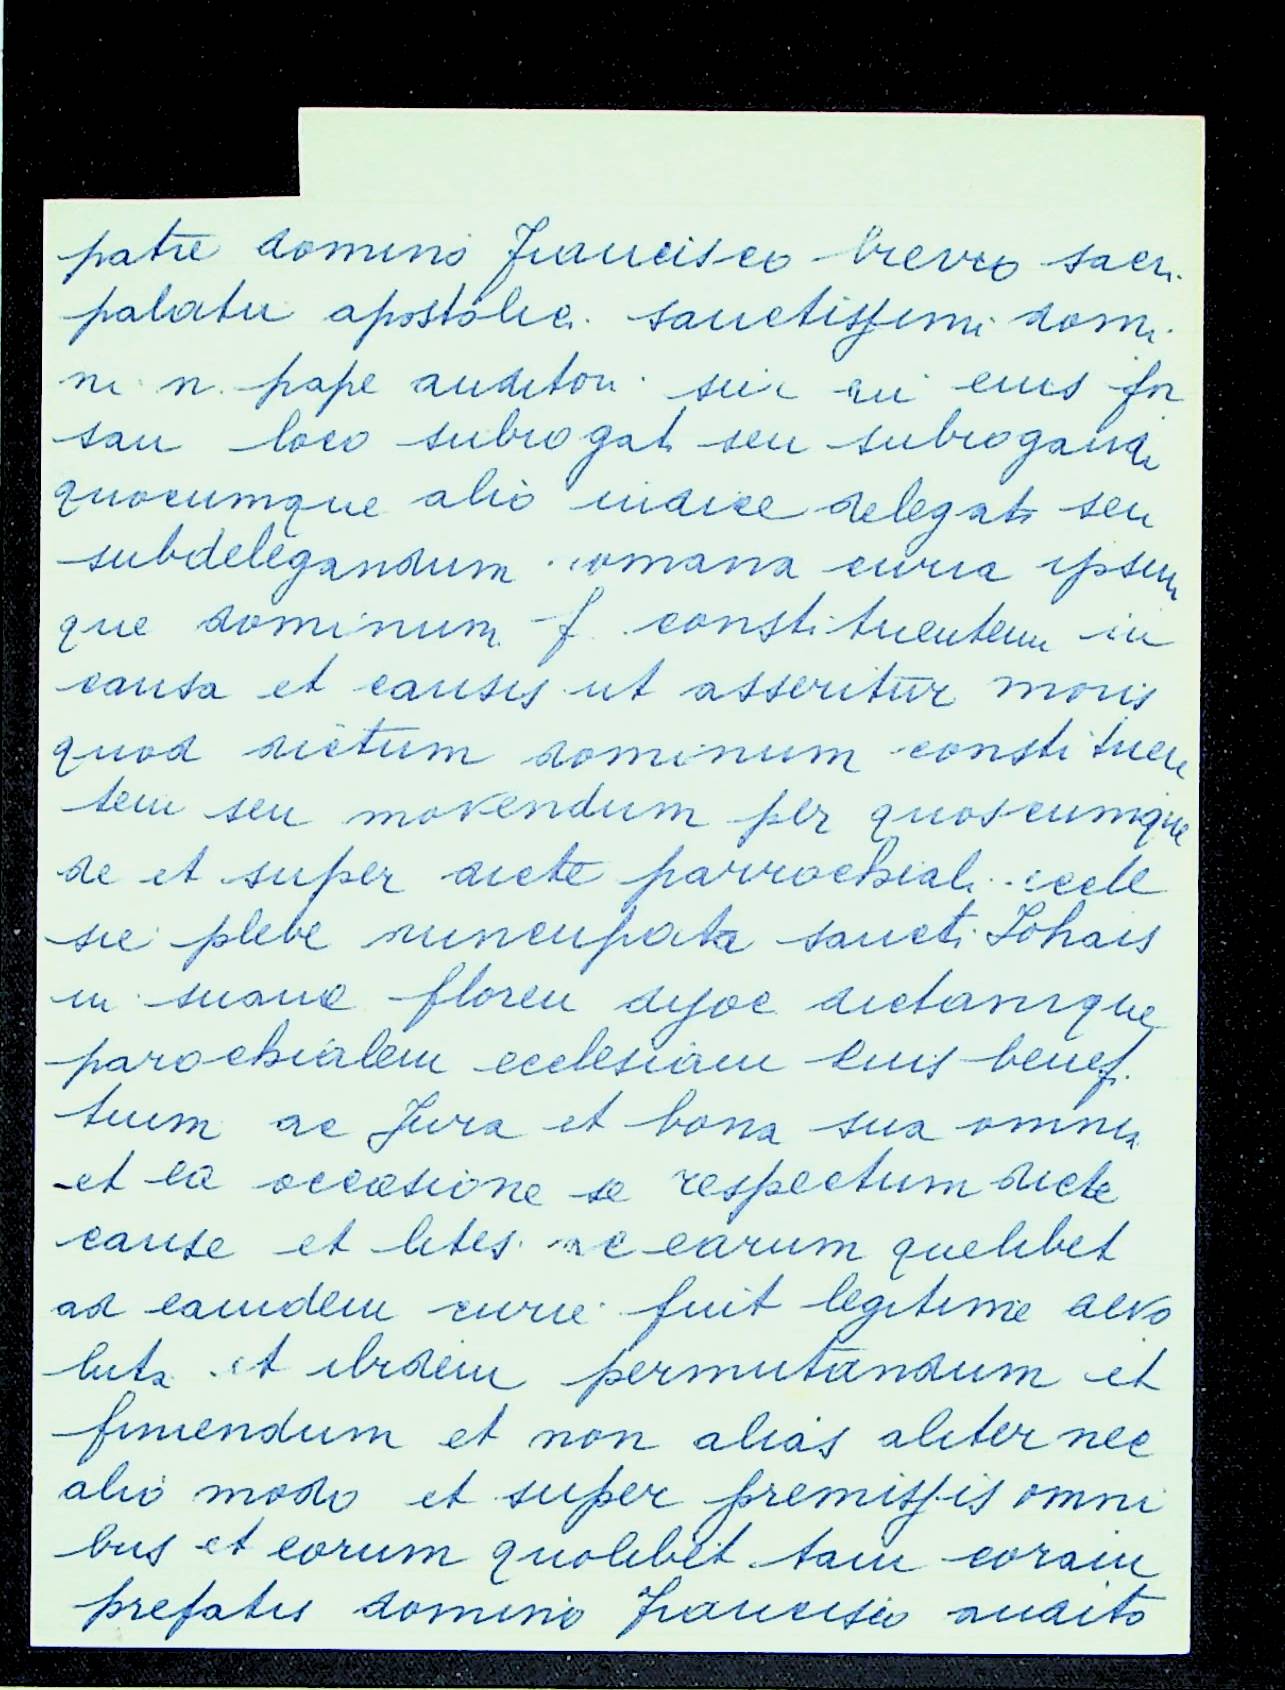 patre domino Francisco brevio sacri
palatii apostolici sanctissimi domi
ni n. pape auditori sive eius for
san loco subrogati seu subrogandi
quocumque alio iudice delegati seu
subdelegandum romana curia ipsum
que dominum f. constituentem in
causa et causis ut asseritur moris
quod dictum dominum constituen
tem seu movendum per quoscumque
de et super dicte parrochiali eccle
sie plebe nuncupata sancti Johais
in suane floren dyoc dictamque
parochialem ecclesiam eius benef.
tuum ac Jura et bona sua omnia
et ea occasione se respectum dicte
cause et lites ac earum quelibet
ad eamdem curie fuit legitime devo
luta et ibidem permutandum et
finiendum et non alias aliter nec
alio modo et super premissis omni
bus et eorum quolibet tam coram
prefatis domino Francisco audito